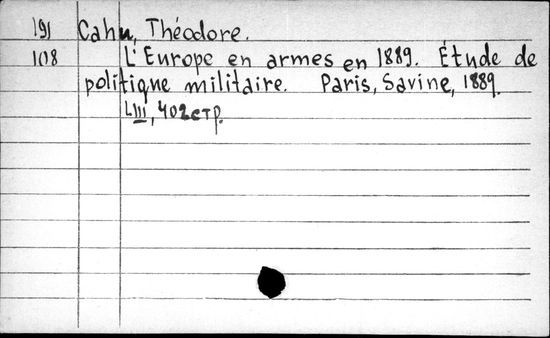 191 Cahu, Théodore.
108 L'Europe en armes en 1889. Étude de
politique militaire. Paris, Savine, 1889.
LIII, 402 стр.